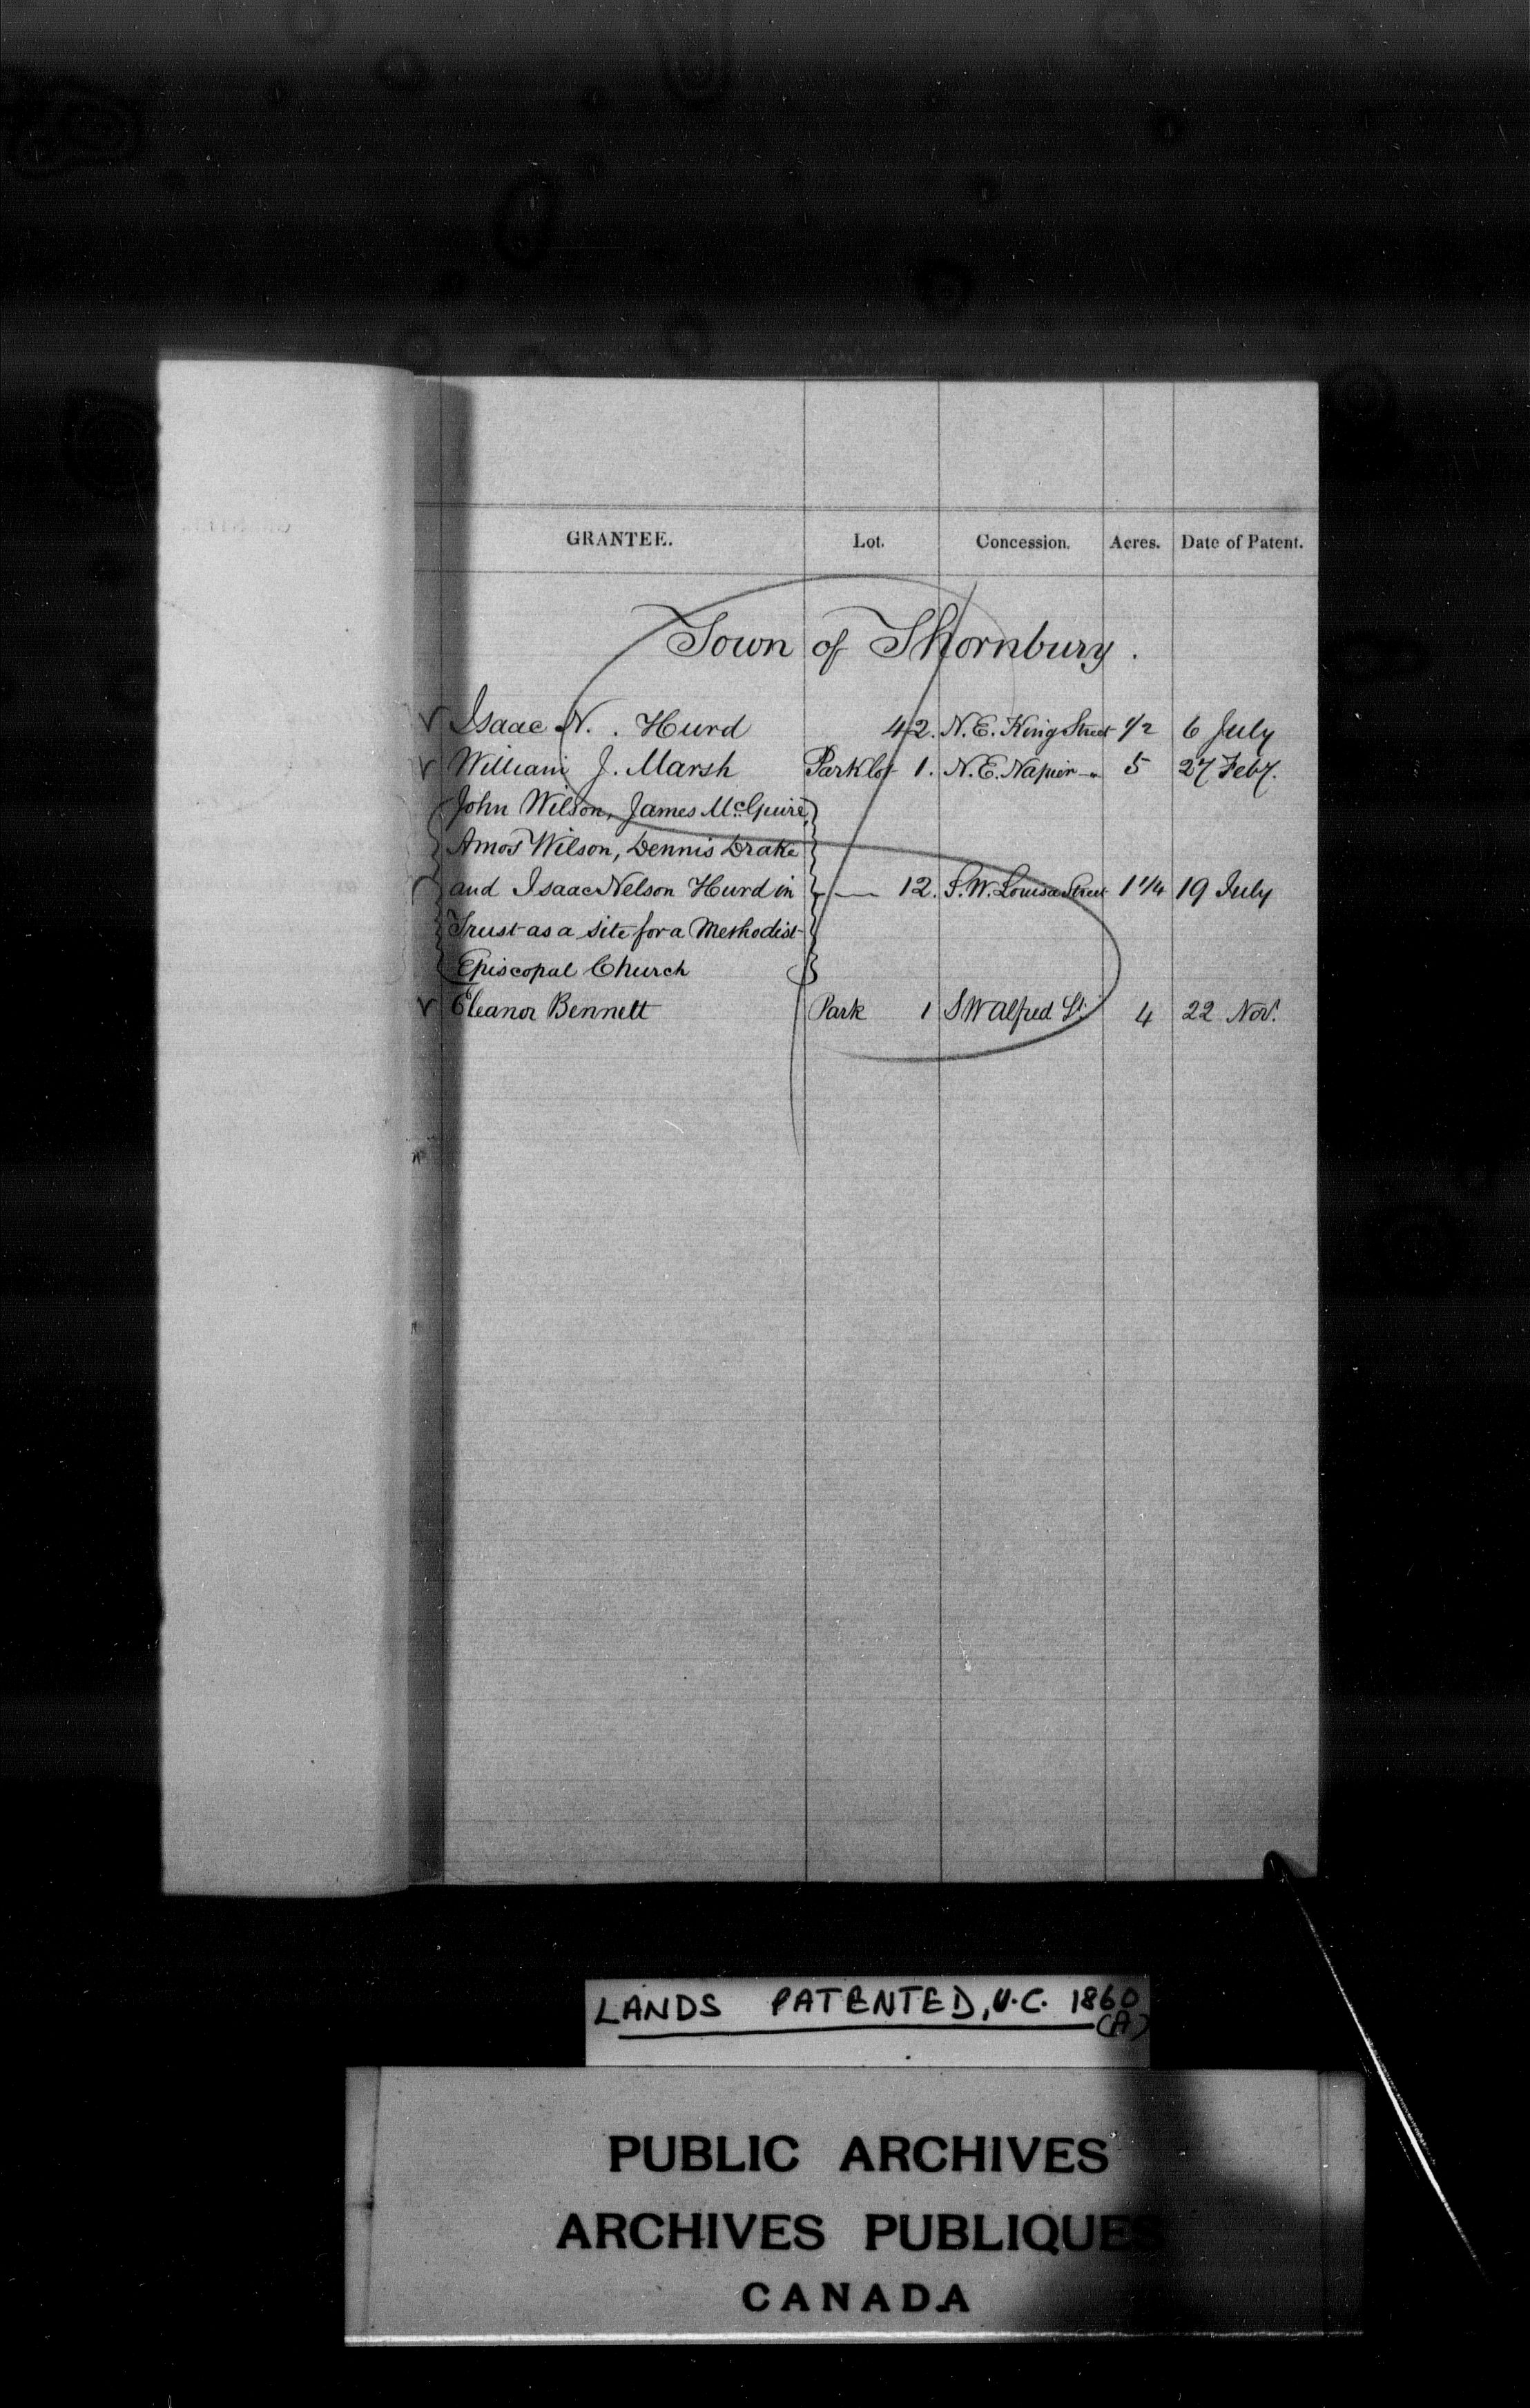 GRANTEE. Lot. Concession. Acres. Date of Patent.
Town of Thornbury.
Isaac N. . Hurd 42. N.E. King Street 1/2 6 July
William J. Marsh Park lot 1. N.E. Napier -"- 5 27 Feby.
John Wilson, James McGuire,
Amos Wilson, Dennis Drake
and Isaac Nelson Hurd in — 12. S.W. Louisa Street 1 1/4 19 July
Trust as a site for a Methodist
Episcopal Church
Eleanor Bennett Park 1 S W Alfred St. 4 22 Nov.
LANDS PATENTED, U.C. 1860
(A)
PUBLIC ARCHIVES
ARCHIVES PUBLIQUES
CANADA